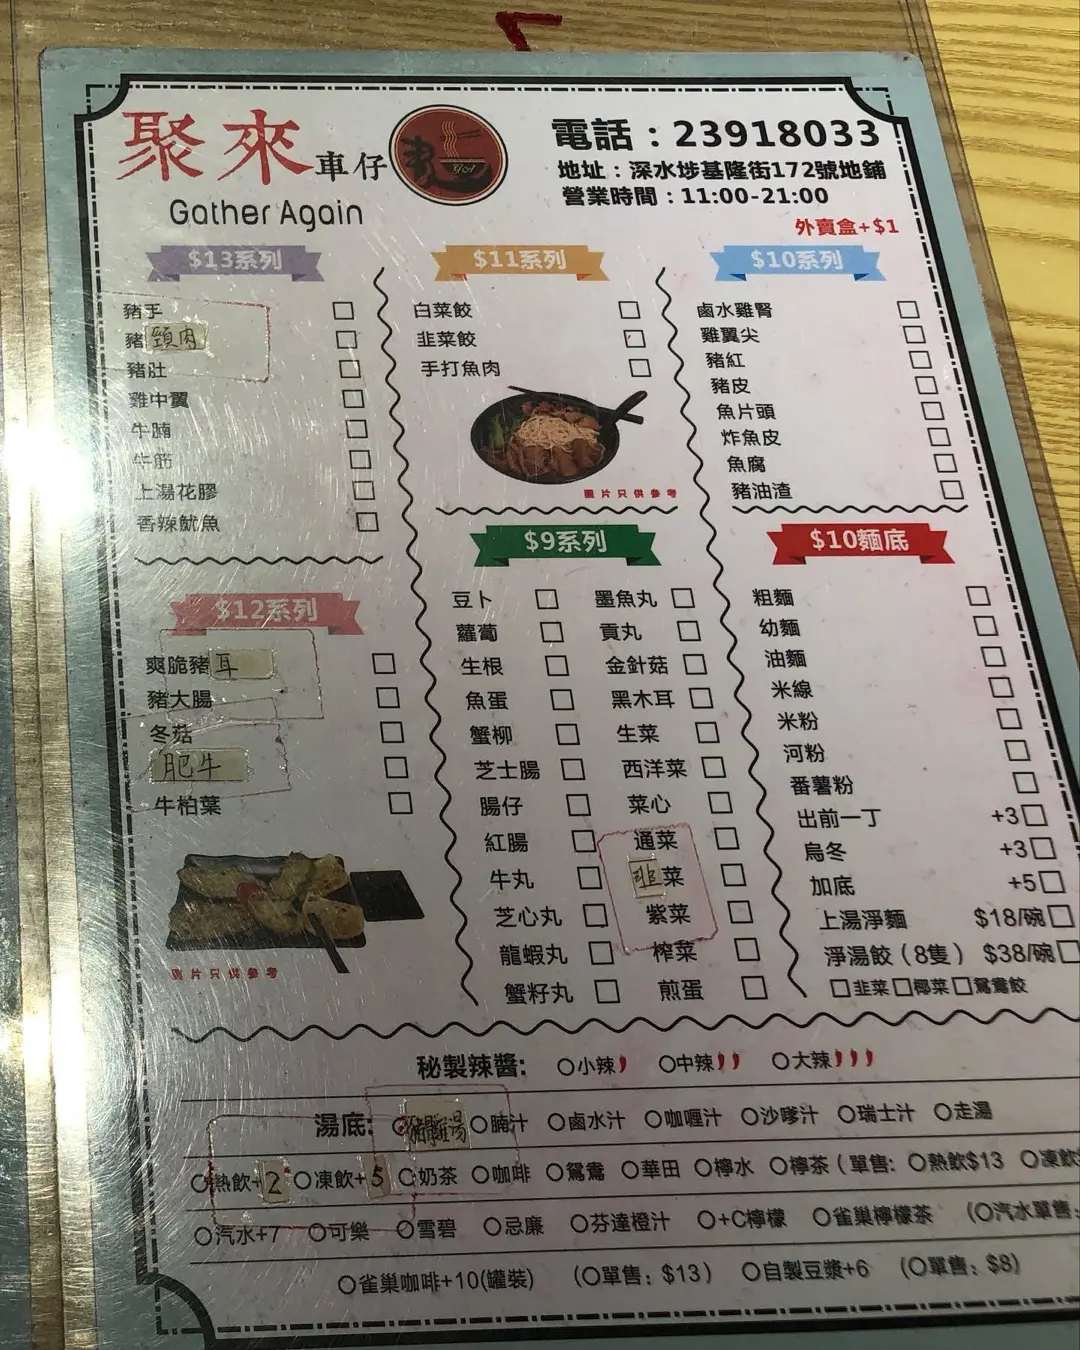 聚來車仔
Gather Again
電話：23918033
地址：深水埗基隆街172號地鋪
營業時間：11:00-21:00
外賣盒+$1
$13系列
豬手
豬頸肉
豬肚
雞中翼
牛腩
牛筋
上湯花膠
香辣魷魚
$12系列
爽脆豬耳
豬大腸
冬菇
肥牛
牛柏葉
圖片只供參考
$11系列
白菜餃
韭菜餃
手打魚肉
圖片只供參考
$9系列
豆卜 墨魚丸
蘿蔔 貢丸
生根 金針菇
魚蛋 黑木耳
蟹柳 生菜
芝士腸 西洋菜
腸仔 菜心
紅腸 通菜
牛丸 韭菜
芝心丸 紫菜
龍蝦丸 榨菜
蟹籽丸 煎蛋
$10系列
鹵水雞腎
雞翼尖
豬紅
豬皮
魚片頭
炸魚皮
魚腐
豬油渣
$10麵底
粗麵
幼麵
油麵
米線
米粉
河粉
番薯粉
出前一丁 +3
烏冬 +3
加底 +5
上湯淨麵 $18/碗
淨湯餃（8隻）$38/碗
韭菜 椰菜 鴛鴦餃
秘製辣醬: 小辣 中辣 大辣
湯底: 湯 腩汁 鹵水汁 咖喱汁 沙嗲汁 瑞士汁 走湯
熱飲+2 凍飲+5 奶茶 咖啡 鴛鴦 華田 檸水 檸茶（單售: 熱飲$13 凍飲
汽水+7 可樂 雪碧 忌廉 芬達橙汁 +C檸檬 雀巢檸檬茶 （汽水單售:
雀巢咖啡+10(罐裝) （單售：$13） 自製豆漿+6 （單售：$8）